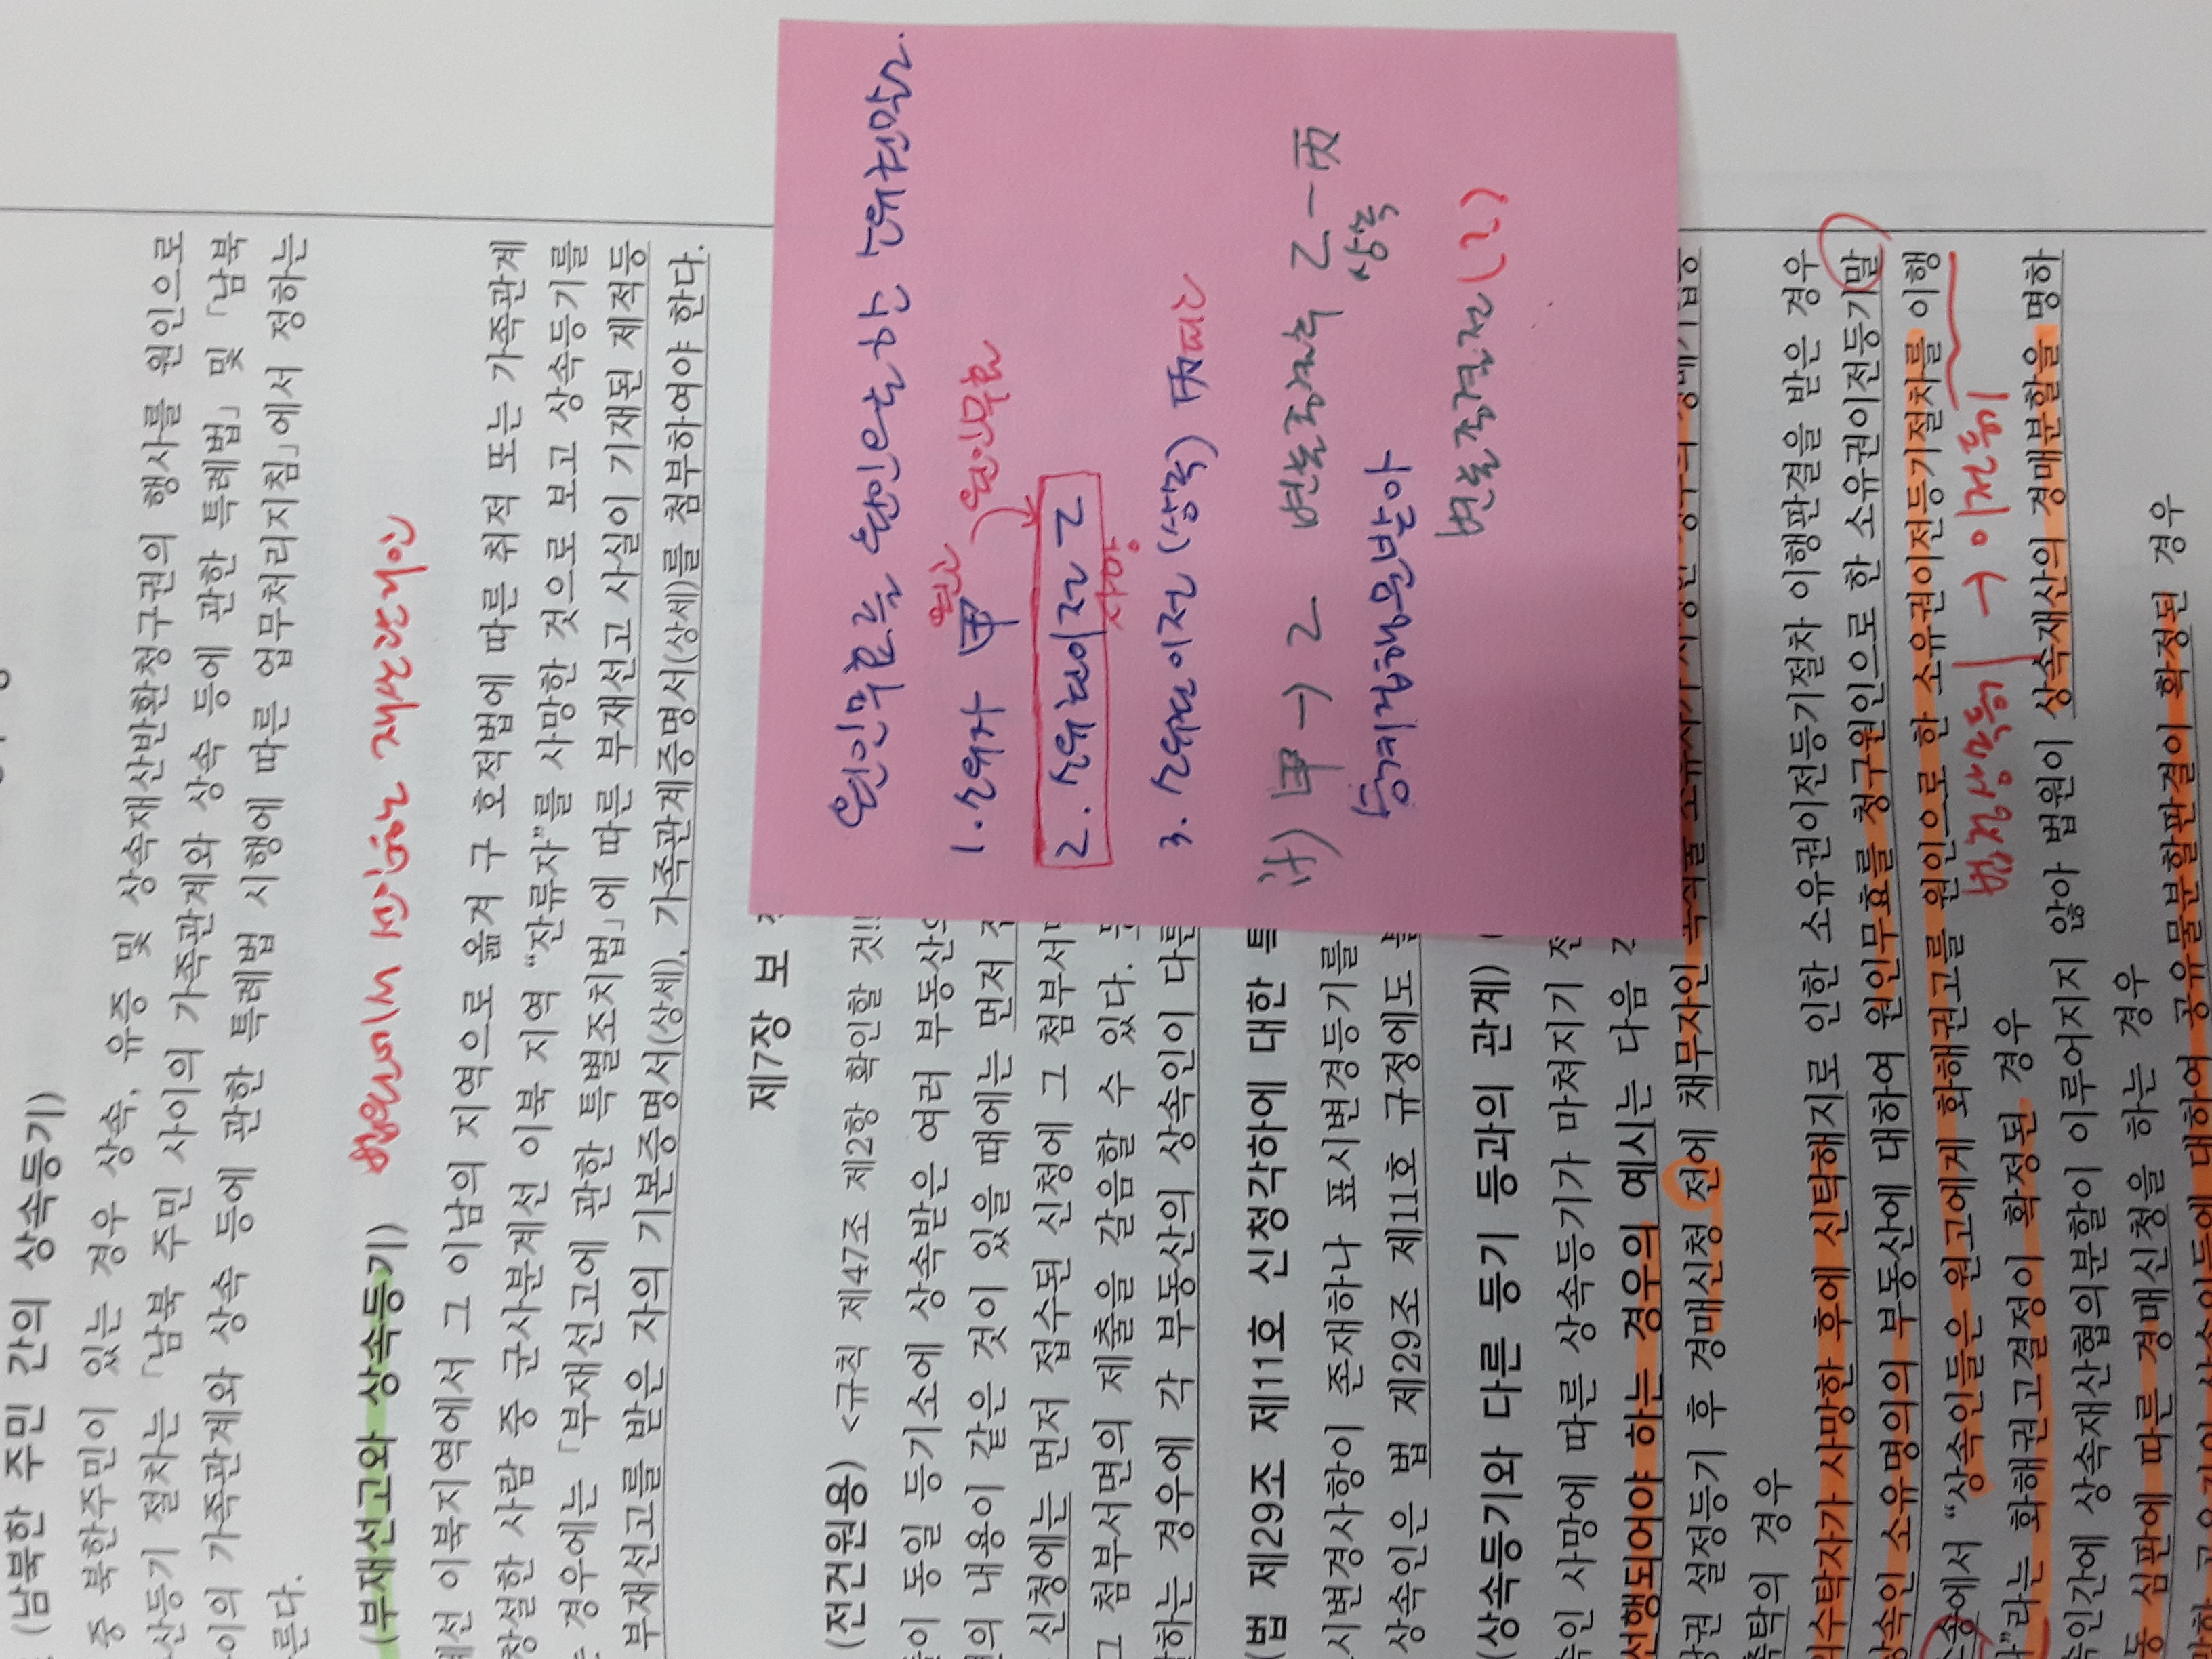 (남북한 주민 간의 상속등기)
중 북한주민이 있는 경우 상속, 유증 및 상속재산반환청구권의 행사를 원인으로
산등기 절차는 「남북 주민 사이의 가족관계와 상속 등에 관한 특례법」 및 「남북
이의 가족관계와 상속 등에 관한 특례법 시행에 따른 업무처리지침」에서 정하는
른다.
(부재선고와 상속등기) 법원에서 선임한 재산관리인
계선 이북지역에서 그 이남의 지역으로 옮겨 구 호적법에 따른 취적 또는 가족관계
창설한 사람 중 군사분계선 이북 지역 "잔류자"를 사망한 것으로 보고 상속등기를
는 경우에는 「부재선고에 관한 특별조치법」에 따른 부재선고 사실이 기재된 제적등
부재선고를 받은 자의 기본증명서(상세), 가족관계증명서(상세)를 첨부하여야 한다.
제7장 보
(전건원용) <규칙 제47조 제2항 확인할 것!!
이 동일 등기소에 상속받은 여러 부동산의
의 내용이 같은 것이 있을 때에는 먼저
신청에는 먼저 접수된 신청에 그 첨부서
그 첨부서면의 제출을 갈음할 수 있다.
하는 경우에 각 부동산의 상속인이 다른
(법 제29조 제11호 신청각하에 대한
시변경사항이 존재하나 표시변경등기를
상속인은 법 제29조 제11호 규정에도
(상속등기와 다른 등기 등과의 관계)
속인 사망에 따른 상속등기가 마쳐지기 전
선행되어야 하는 경우의 예시는 다음
당권 설정등기 후 경매신청 전에 채무자인
촉탁의 경우
의수탁자가 사망한 후에 신탁해지로 인한 소유권이전등기절차 이행판결을 받은 경우
상속인 소유명의의 부동산에 대하여 원인무효를 청구원인으로 한 소유권이전등기말
소송에서 "상속인들은 원고에게 화해권고를 원인으로 한 소유권이전등기절차를 이행
라"라는 화해권고결정이 확정된 경우
법정상속등기 → 이전등기
속인간에 상속재산협의분할이 이루어지지 않아 법원이 상속재산의 경매분할을 명하
동 심판에 따른 경매신청을 하는 경우
대하여 공유물분할판결이 확정된 경우
원인무효를 원인으로한 소유권말소.
1. 소유자 甲 원고
원인무효
2. 소유권이전 乙
사망
3. 소유권이전 (상속) 丙 피고
차) 甲 → 乙 변론종결후 乙 - 丙
상속
승계집행문받아
변론종결전 (?)